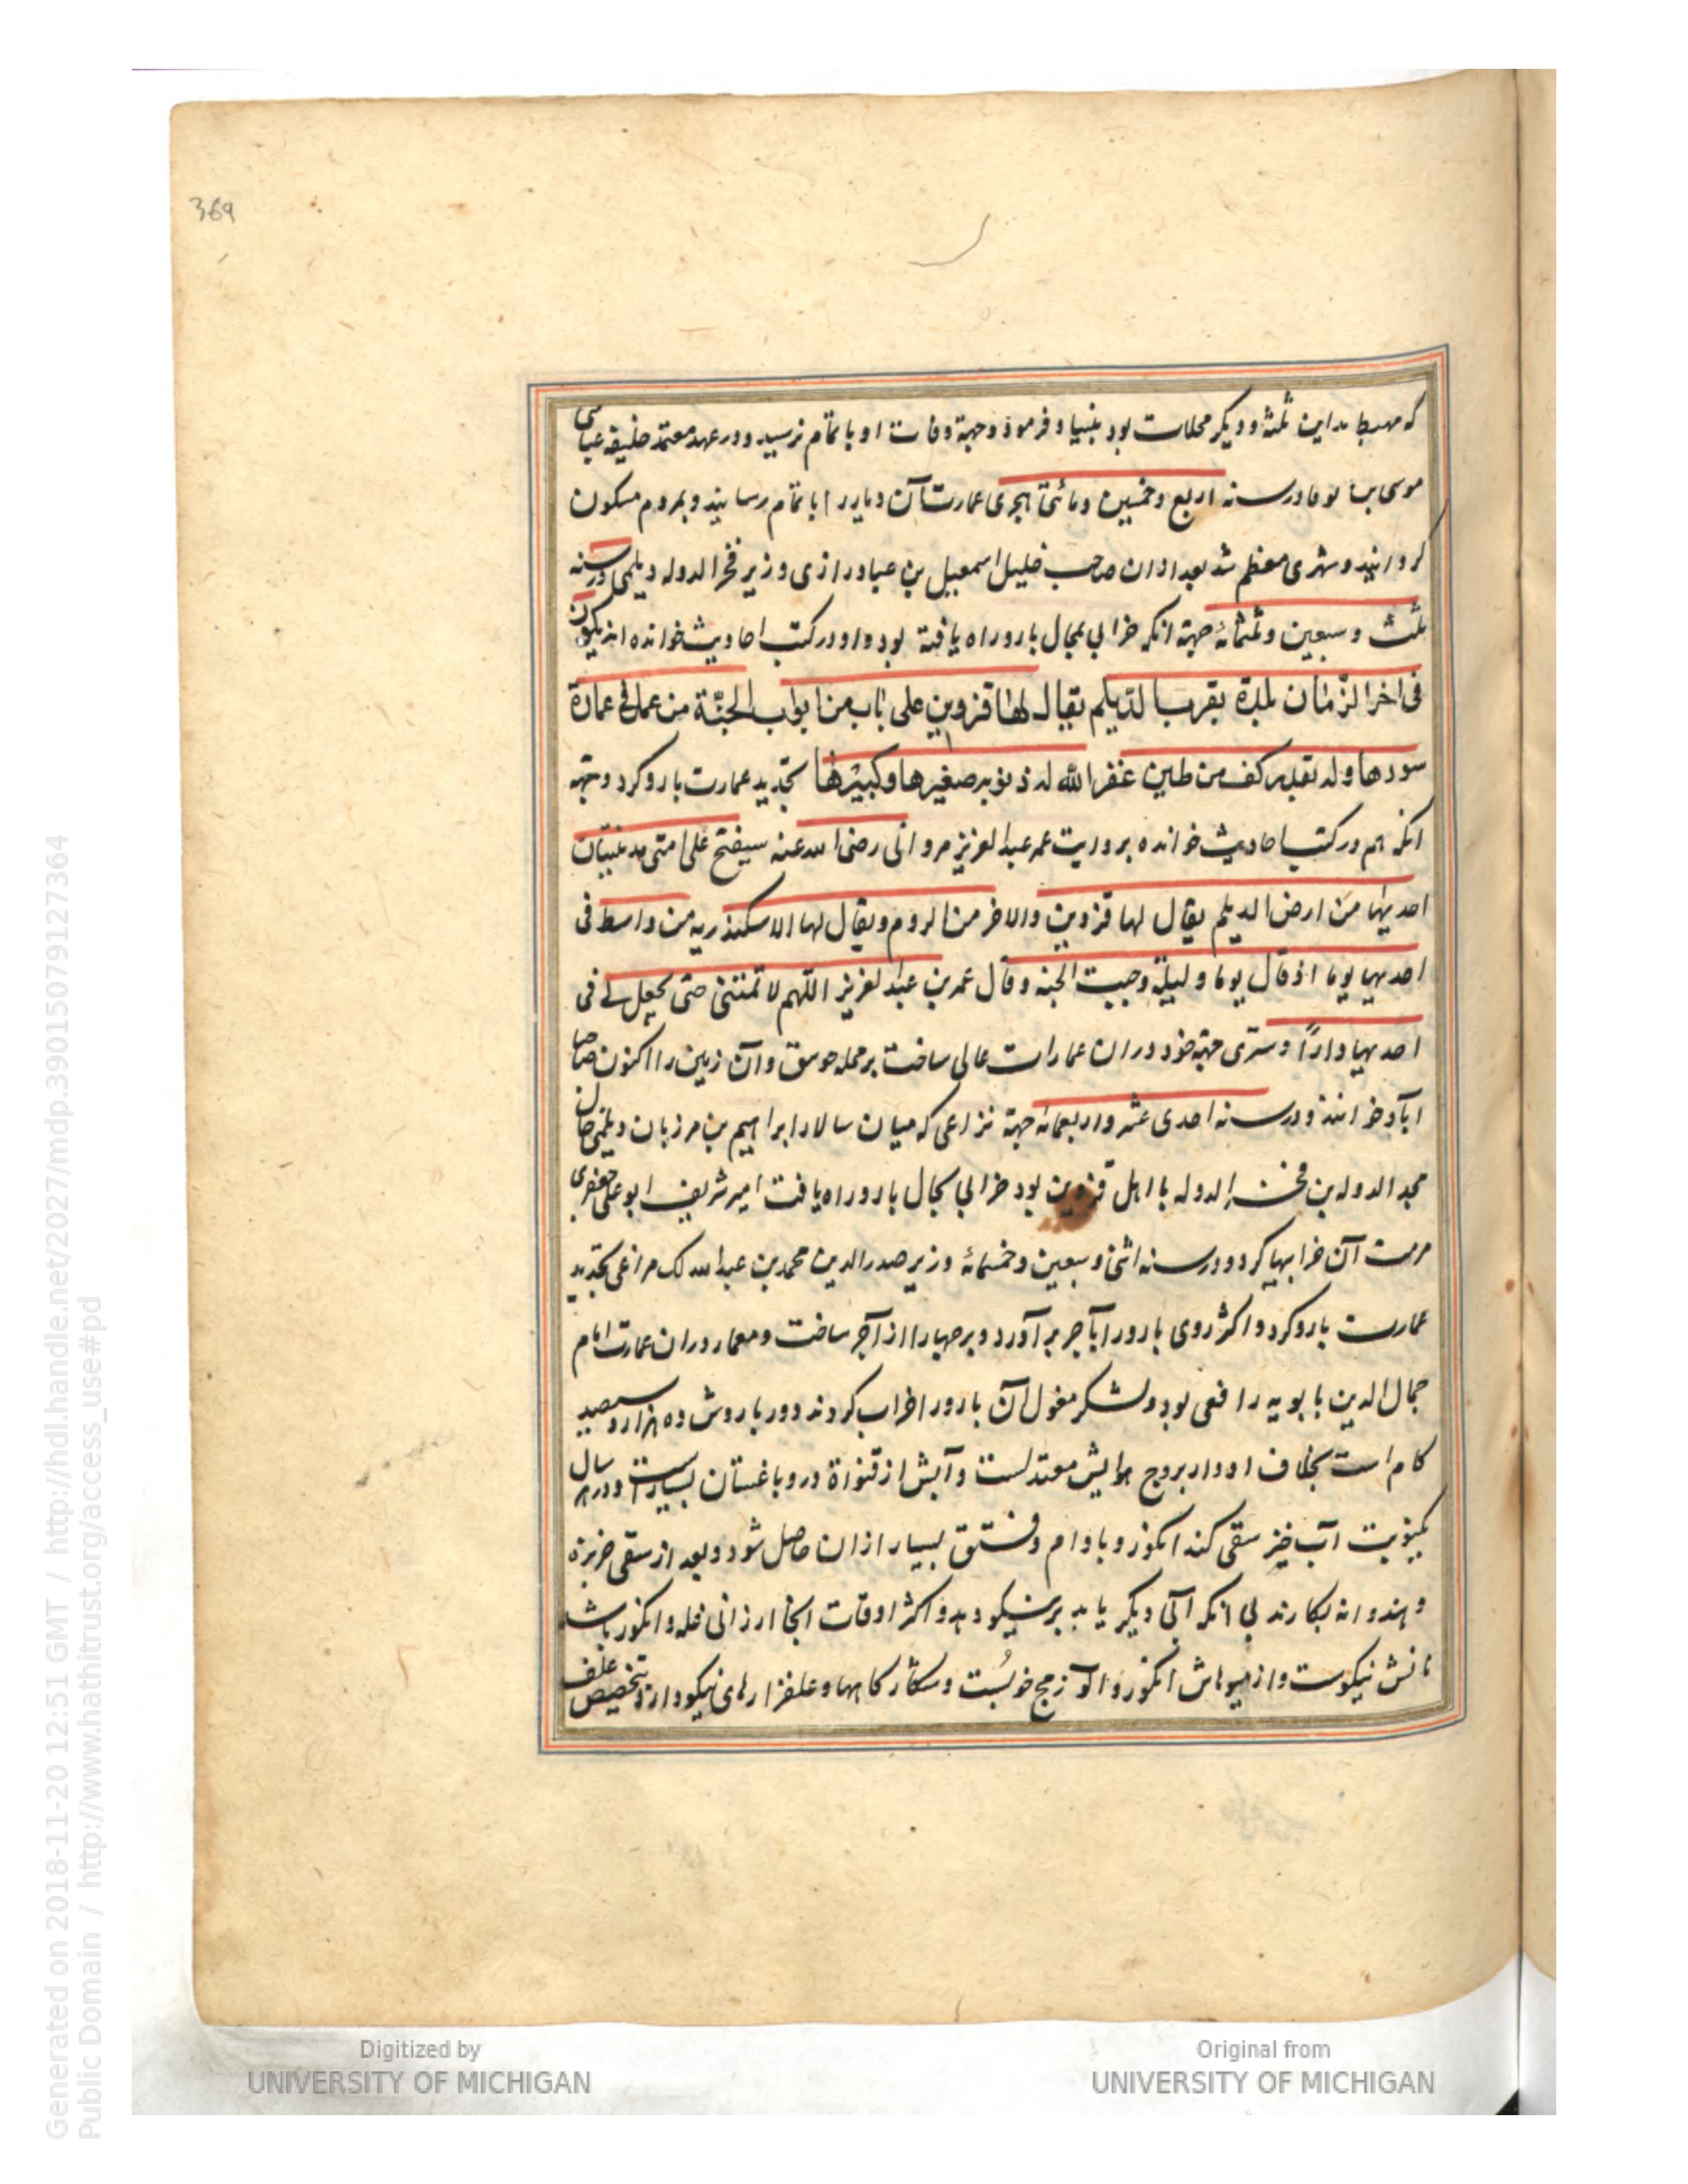 369
که مهبط مداین ثلثه و دیگر محلات بود بنیاد فرمود و جهة وفات او باتمام نرسید و در عهد معتمد خلیفه عباسی
موسی بن بوقا در سنه اربع و خمسین و مأتی هجری عمارت آن دیار را باتمام رسانید و بمردم مسکون
کردانید و شهری معظم شد بعد ازان صاحب خلیل اسمعیل بن عباد رازی وزیر فخر الدوله دیلمی در سنه
ثلث و سبعین و ثلثمائه جهة انکه خرابی بحال بارو راه یافته بود و او در کتب احادیث خوانده اند یکون
فی اخر الزمان بلدة بقرب الدیلم یقال لها قزوین علی باب من ابواب الجنة من عمل فی عمارة
سورها ولو بقدر کف من طین غفر الله له ذنوبه صغیرها و کبیرها تجدید عمارت بارو کرد و جهة
انکه هم در کتب احادیث خوانده بروایت عمر عبد العزیز مروانی رضی الله عنه سیفتح علی امتی مدینتان
احدیهما من ارض الدیلم یقال لها قزوین والاخر من الروم و یقال لها الاسکندریه من واسط فی
احدیهما یوما اذ قال یوما و لیلة وجبت الجنه و قال عمر بن عبد العزیز اللهم لا تمتنی حتی تجعل لی فی
احدیهما دارا و سری جهة خود دران عمارات عالی ساخت بر محله جوسق و آن زمین را اکنون صاحب
آباد خوانند و در سنه احدی عشر و اربعمائه جهة نزاعی که میان سالار ابراهیم بن مرزبان دیلمی خال
مجد الدوله بن فخر الدوله با اهل قزوین بود خرابی بحال بارو راه یافت امیر شریف ابو علی جعفری
مرمت آن خرابیها کرد و در سنه اثنی و سبعین و خمسمائه وزیر صدر الدین محمد بن عبد الله لک مراغی تجدید
عمارت بارو کرد و اکثر روی بارو را بآجر برآورد و برجها را از آجر ساخت و معمار دران عمارت امام
جمال الدین بابویه رافعی بود و لشکر مغول آن بارو را خراب کردند دور باروش ده هزار و سیصد
کام است بخلاف ادوار بروج هوایش معتدلست و آبش از قنواة و درو باغستان بسیارست و در هر سال
یکنوبت آب خیز سقی کند انکور و بادام و فستق بسیار ازان حاصل شود و بعد از سقی خربزه
و هندوانه بکارند بی انکه آبی دیکر یابد بر نیکو دهد و اکثر اوقات انجا ارزانی غله و انکور باشد
نانش نیکوست و از میوهاش انکور و آلو زمج خوبست و شکارکاهها و علفزارهای نیکو دارد بتخصیص علف
Digitized by
UNIVERSITY OF MICHIGAN
Original from
UNIVERSITY OF MICHIGAN
Generated on 2018-11-20 12:51 GMT / http://hdl.handle.net/2027/mdp.39015079127364
Public Domain / http://www.hathitrust.org/access_use#pd